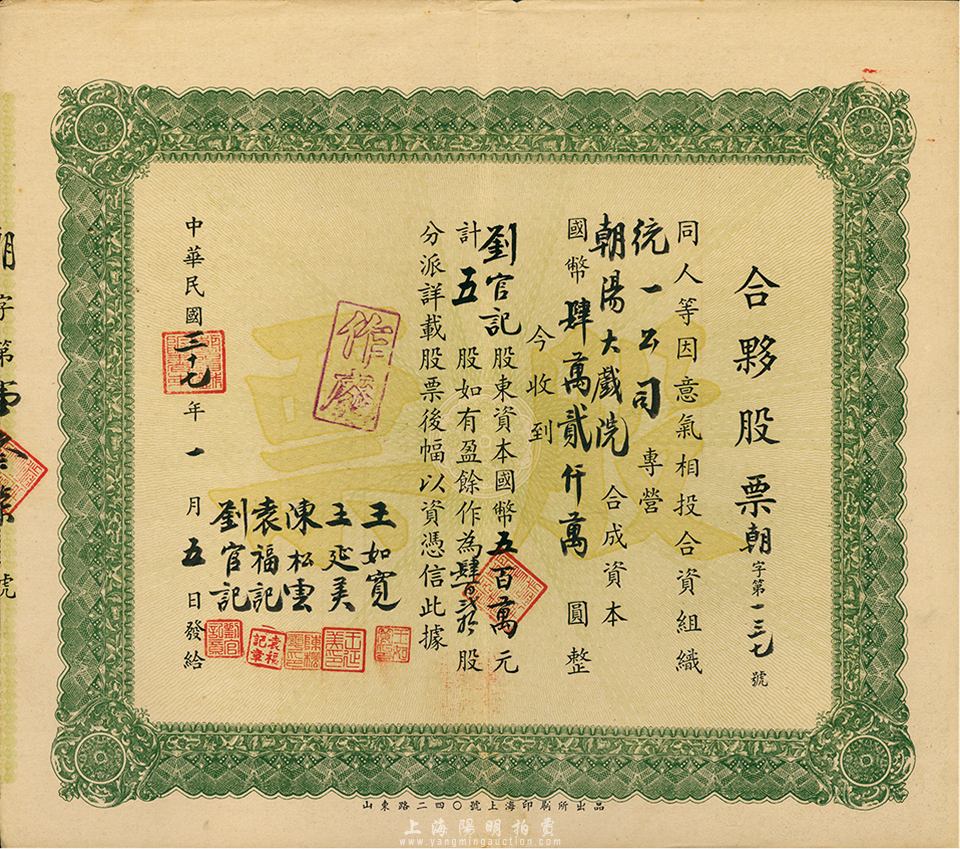 合夥股票朝字第一三七號
同人等因意氣相投合資組織
統一公司專營
朝陽大戲院合成資本
國幣肆萬貳仟萬圓整
今收到
劉官記股東資本國幣五百萬元
計五股如有盈餘作為肆百貳拾股
分派詳載股票後幅以資憑信此據
作廢
王如寬
王延美
陳松雲
袁福記
劉官記
袁福記章
中華民國三十七年一月五日發給
朝字第
號
股票
山東路二四〇號上海印刷所出品
上海陽明拍賣
www.yangmingauction.com